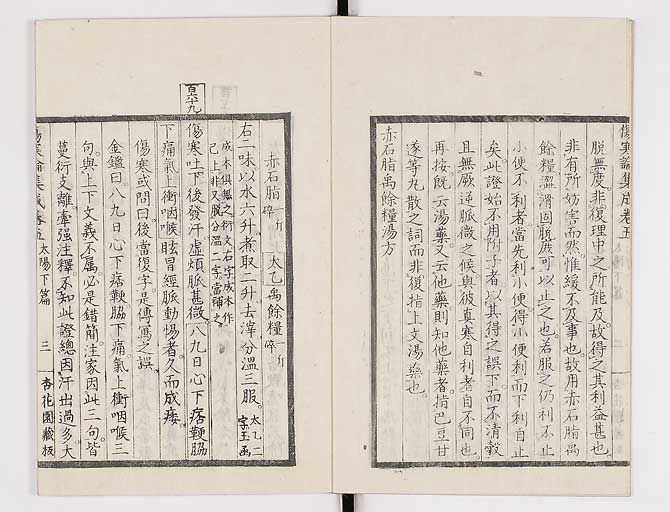 傷寒論集成卷五
脫無度。非復理中之所能及。故得之其利益甚也。
非有所妨害而然。惟緩不及事也。故用赤石脂禹
餘糧澀滑固脫。庶可以止之也。若服之仍利不止
小便不利者。當先利小便。得小便利而下利自止
矣。此證始不用附子者。以其得之誤下而不清穀
且無厥逆脈微之候。與彼真寒自利者自不同也。
再按既云湯藥。又云他藥。則知他藥者。指巴豆甘
遂等丸散之詞。而非復指上文湯藥也。
赤石脂禹餘糧湯方
赤石脂一斤碎 太乙禹餘糧一斤碎
右二味。以水六升。煮取二升。去滓。分溫三服。太乙二字玉函
成本俱無之。衍文。右字成本作
已上非。又脫分溫二字。當補之
百六十九
傷寒吐下後發汗。虛煩。脈甚微。八九日心下痞鞕。脇
下痛。氣上衝咽喉。眩冒。經脈動惕者。久而成痿。
傷寒或問曰。後當復字。是傳寫之誤
金鑑曰。八九日心下痞鞕。脇下痛。氣上衝咽喉三
句。與上下文義不属。必是錯簡。注家因此三句。皆
蔓衍支離。牽强注釋。不知此證總因汗出過多。大
傷寒論集成卷五 太陽下篇 三 杏花園藏板